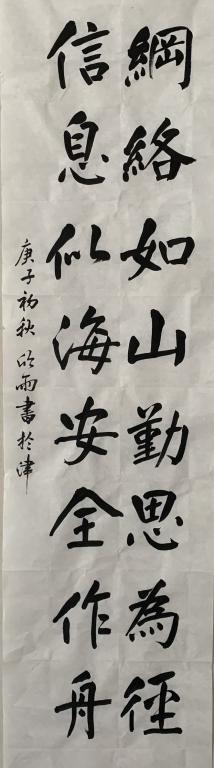 綱絡如山勤思為徑
信息似海安全作舟
庚子初秋欣雨書於津